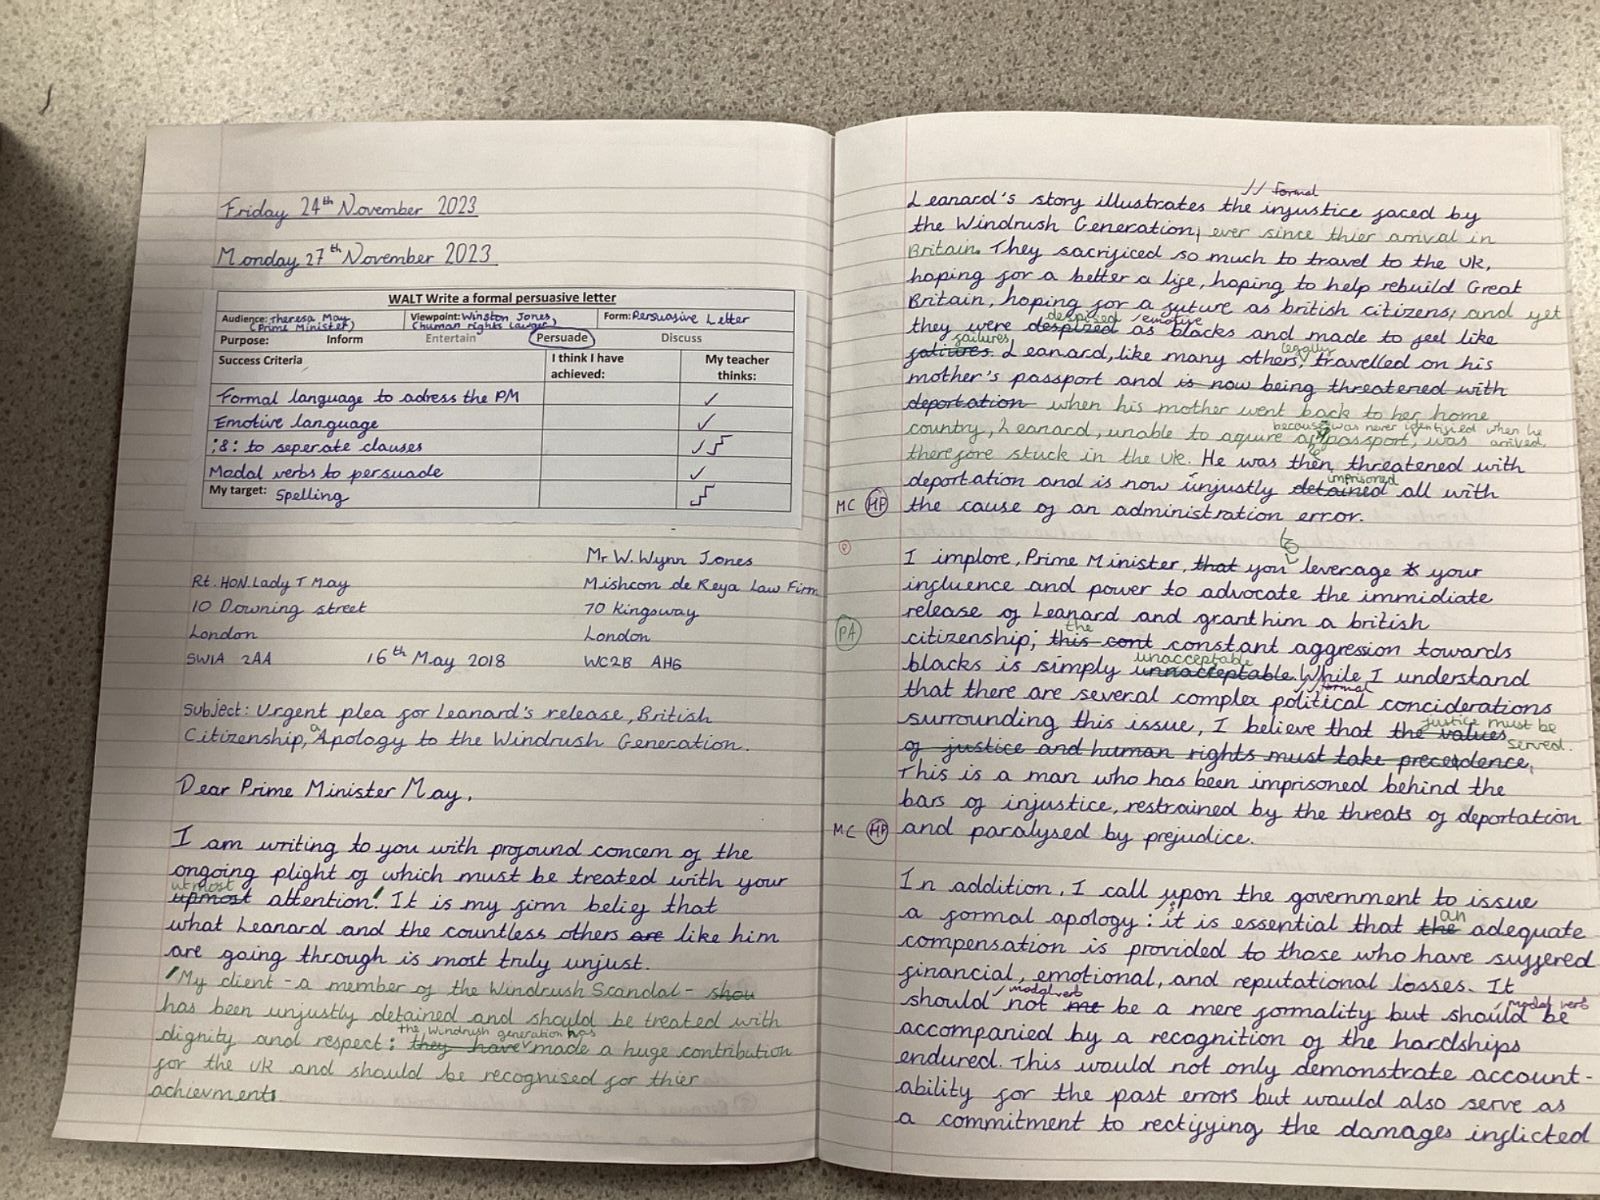 Friday 24th November 2023
Monday 27th November 2023
WALT Write a formal persuasive letter
Audience: Theresa May (Prime Minister)
Viewpoint: Winston Jones, (human rights lawyer)
Form: Persuasive Letter
Purpose: Inform Entertain Persuade Discuss
Success Criteria
I think I have achieved:
My teacher thinks:
Formal language to adress the PM
Emotive language
;&: to seperate clauses
Modal verbs to persuade
My target: Spelling
Mr W. Wynn Jones
Rt. HON. Lady T May
Mishcon de Reya Law Firm
10 Downing street
70 Kingsway
London
London
SW1A 2AA
16th May 2018
WC2B AHG
Subject: Urgent plea for Leanard's release, British
Citizenship, Apology to the Windrush Generation.
a
Dear Prime Minister May,
I am writing to you with profound concern of the
ongoing plight of which must be treated with your
utmost
upmost attention! It is my firm belief that
what Leanard and the countless others are like him
are going through is most truly unjust.
My client - a member of the Windrush Scandal - shou
has been unjustly detained and should be treated with
the windrush generation has
dignity and respect: they have made a huge contribution
for the UK and should be recognised for thier
achievments
// formal
Leanard's story illustrates the injustice faced by
the Windrush Generation, ever since thier arrival in
Britain. They sacrificed so much to travel to the UK,
hoping for a better a life, hoping to help rebuild Great
Britain, hoping for a future as british citizens, and yet
despised / emotive
they were despized as blacks and made to feel like
failures legally
Leanard, like many others, travelled on his
mother's passport and is now being threatened with
deportation when his mother went back to her home
because was never identified when he
country, Leanard, unable to aquire a passport, was arrived,
therefore stuck in the UK. He was then threatened with
imprisoned
deportation and is now unjustly detained all with
MC HP the cause of an administration error.
P
to
I implore, Prime Minister, that you leverage your
influence and power to advocate the immidiate
release of Leanard and grant him a british
the
PA
citizenship; this cont constant aggression towards
unacceptable
blacks is simply unnacceptable. While I understand
// formal
that there are several complex political conciderations
justice must be
surrounding this issue, I believe that the values
served.
of justice and human rights must take precedence.
This is a man who has been imprisoned behind the
bars of injustice, restrained by the threats of deportation
MC HP and paralysed by prejudice.
In addition, I call upon the government to issue
an
a formal apology: it is essential that the adequate
compensation is provided to those who have suffered
financial, emotional, and reputational losses. It
/ modal verb modal verb
should not me be a mere formality but should be
accompanied by a recognition of the hardships
endured. This would not only demonstrate account-
ability for the past errors but would also serve as
a commitment to rectifying the damages inflicted